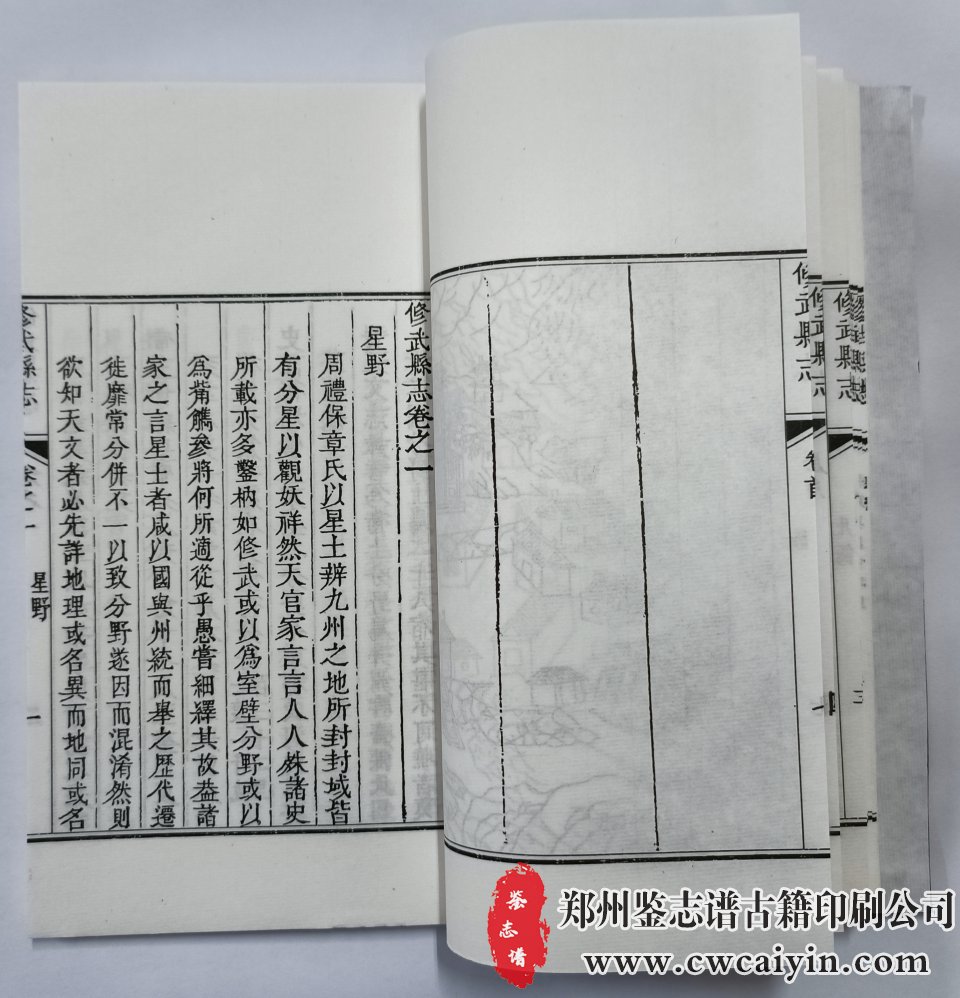 修武縣志
卷首
修武縣志
修武縣志
三
修武縣志卷之一
星野
周禮保章氏以星土辨九州之地所封封域皆
有分星以觀妖祥然天官家言言人人殊諸史
所載亦多鑿枘如修武或以為室壁分野或以
為觜觿參將何所適從乎愚嘗細繹其故葢諸
家之言星土者咸以國與州統而舉之歷代遷
徙靡常分併不一以致分野遂因而混淆然則
欲知天文者必先詳地理或名異而地同或名
修武縣志
卷之一
星野
一
鉴志谱
郑州鉴志谱古籍印刷公司
www.cwcaiyin.com